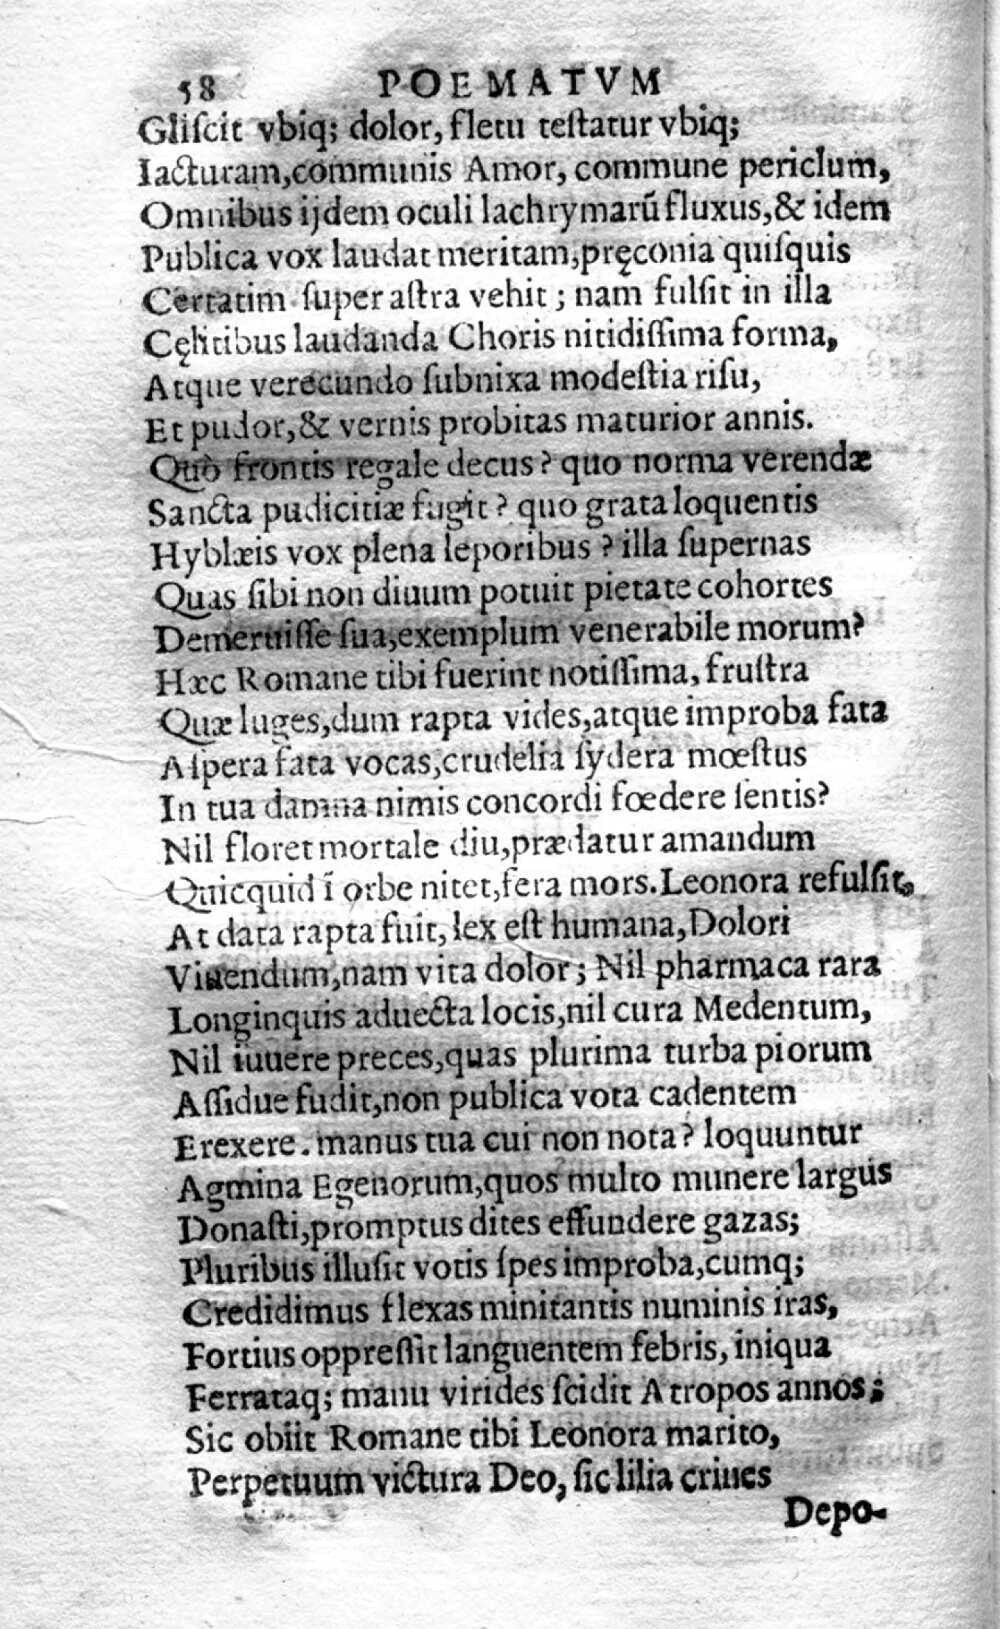 58 POEMATVM
Gliſcit vbiq; dolor, fletu teſtatur vbiq;
Iacturam,communis Amor, commune periclum,
Omnibus ijdem oculi lachrymarũ fluxus,& idem
Publica vox laudat meritam,pręconia quiſquis
Certatim ſuper aſtra vehit; nam fulſit in illa
Cęlitibus laudanda Choris nitidiſſima forma,
Atque verecundo ſubnixa modeſtia riſu,
Et pudor,& vernis probitas maturior annis.
Quò frontis regale decus? quo norma verendæ
Sancta pudicitiæ fugit? quo grata loquentis
Hyblæis vox plena leporibus? illa ſupernas
Quas ſibi non diuum potuit pietate cohortes
Demeruiſſe ſua,exemplum venerabile morum?
Hæc Romane tibi fuerint notiſſima, fruſtra
Quæ luges,dum rapta vides,atque improba fata
Aſpera fata vocas,crudelia ſydera mœſtus
In tua damna nimis concordi fœdere ſentis?
Nil floret mortale diu,prædatur amandum
Quicquid ĩ orbe nitet,fera mors. Leonora refulſit,
At data rapta fuit, lex eſt humana,Dolori
Viuendum,nam vita dolor; Nil pharmaca rara
Longinquis aduecta locis,nil cura Medentum,
Nil iuuere preces,quas plurima turba piorum
Aſſidue fudit,non publica vota cadentem
Erexere. manus tua cui non nota? loquuntur
Agmina Egenorum,quos multo munere largus
Donaſti,promptus dites effundere gazas;
Pluribus illuſit votis ſpes improba,cumq;
Credidimus flexas minitantis numinis iras,
Fortius oppreſſit languentem febris, iniqua
Ferrataq; manu virides ſcidit Atropos annos;
Sic obiit Romane tibi Leonora marito,
Perpetuum victura Deo, ſic lilia crines
Depo-